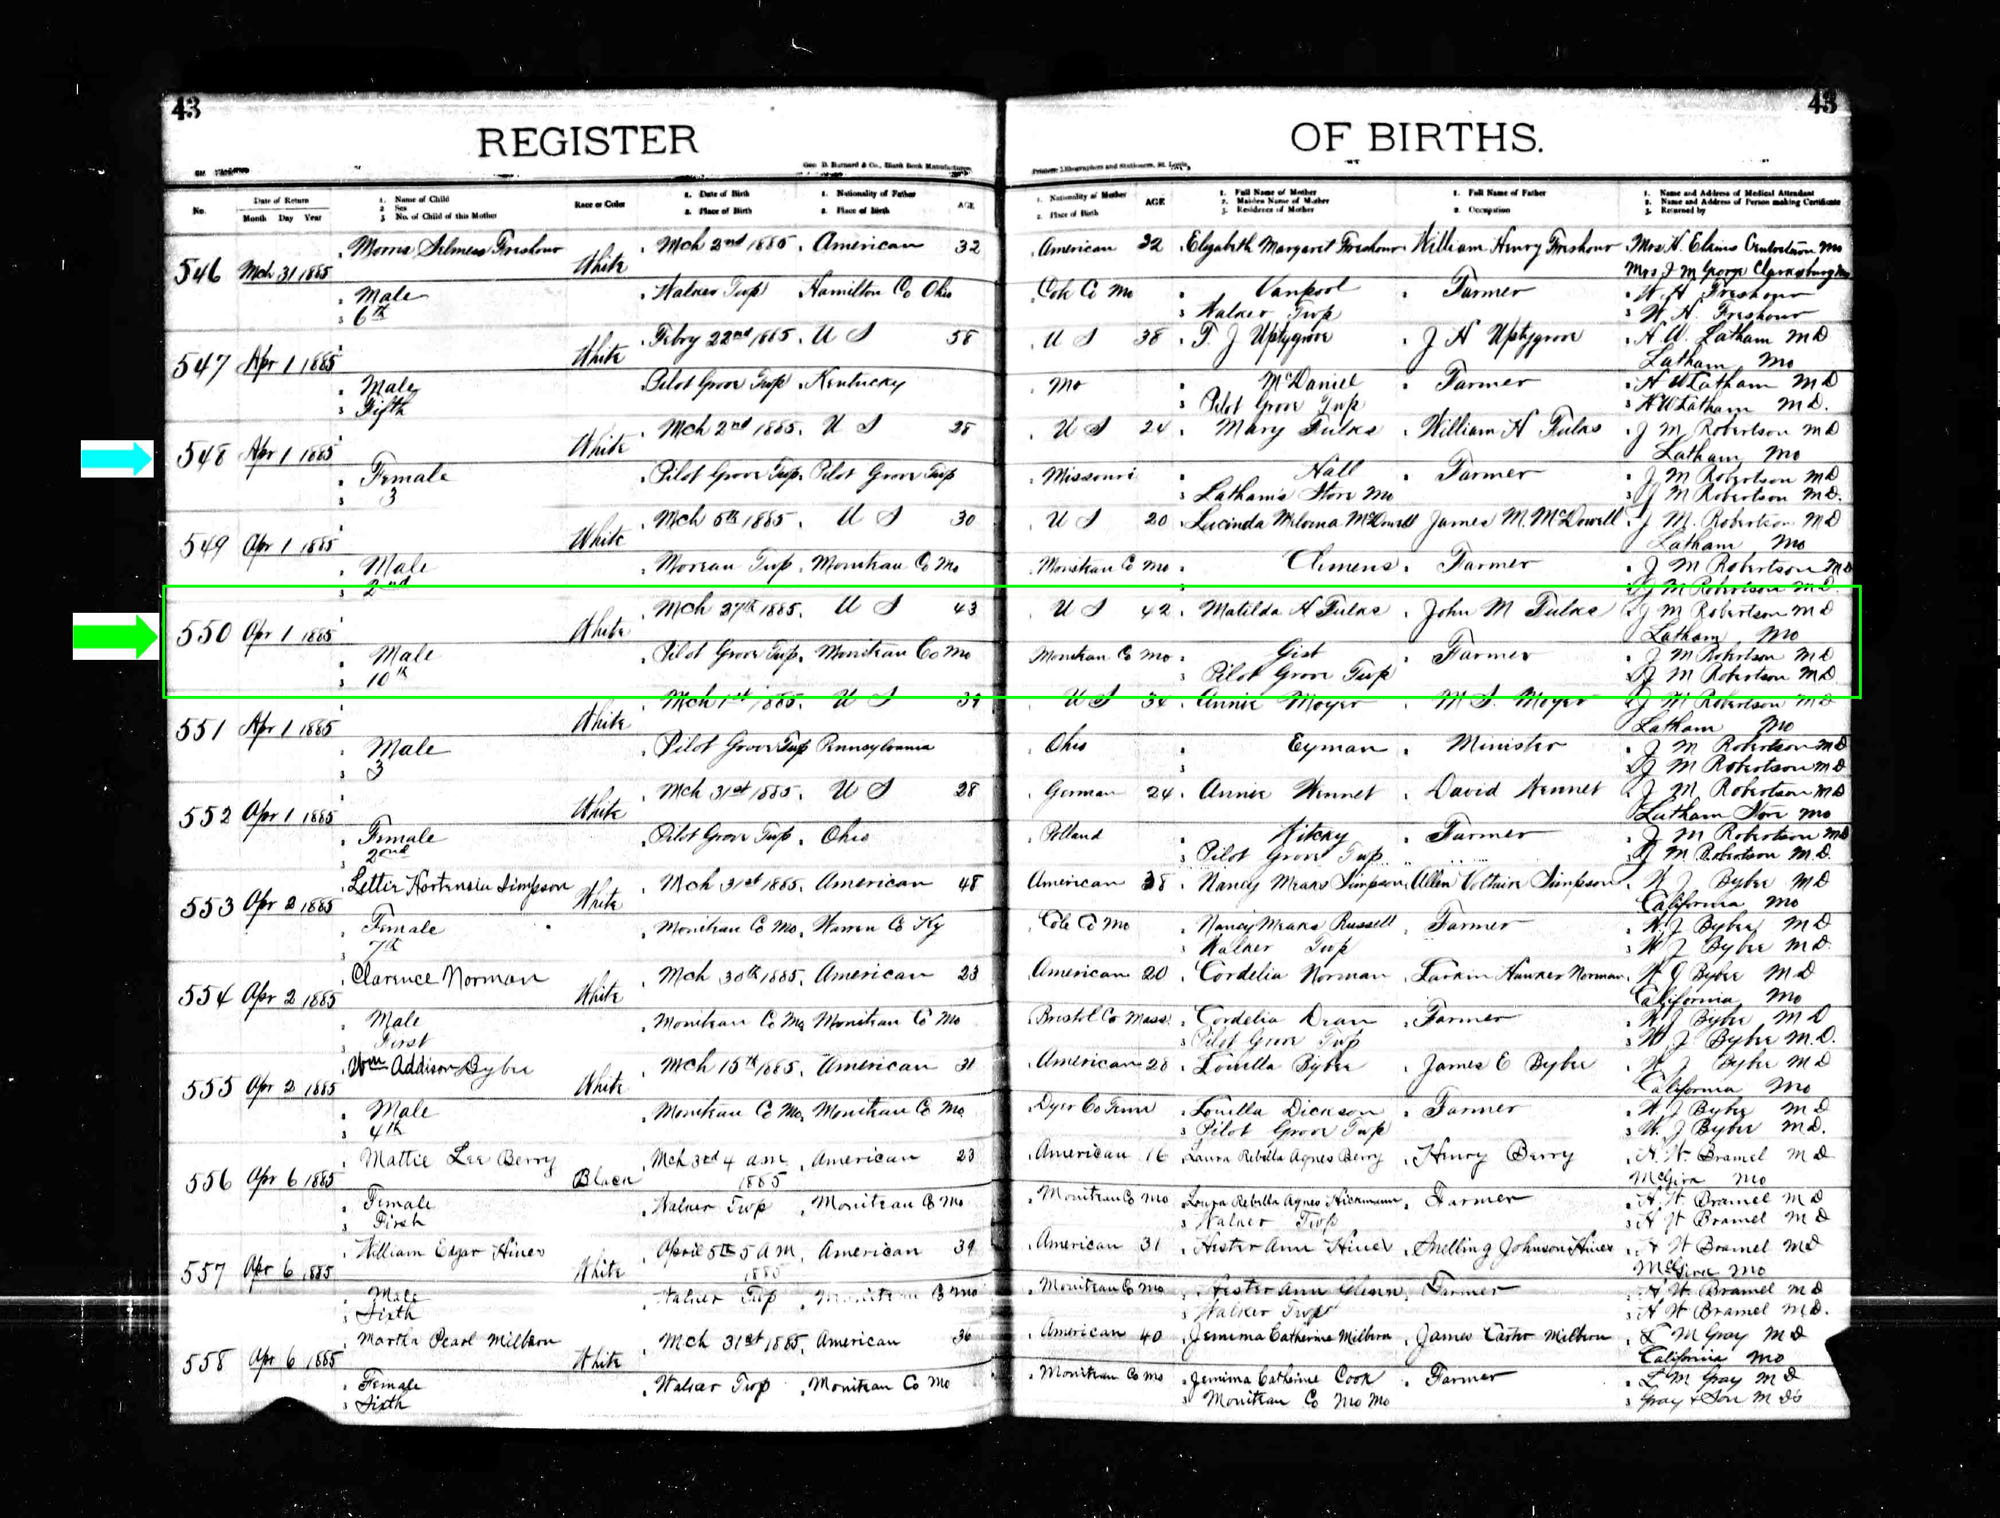 43
43
REGISTER
OF BIRTHS.
Geo. D. Barnard & Co., Blank Book Manufacturers,
Printers Lithographers and Stationers, St. Louis
No.
Date of Return
Month Day Year
1. Name of Child
2 Sex
3 No. of Child of this Mother
Race or Color
1. Date of Birth
2. Place of Birth
1. Nationality of Father
2. Place of Birth
AGE
1. Nationality of Mother
2. Place of Birth
AGE
1. Full Name of Mother
2. Maiden Name of Mother
3. Residence of Mother
1. Full Name of Father
2. Occupation
1. Name and Address of Medical Attendant
2. Name and Address of Person making Certificate
3. Returned by
546 Mch 31 1885 Morris Freshour White Mch 2nd 1885. American 32 American 32 Elizabeth Margaret Freshour William Henry Freshour Mrs. H. Elkins Centretown Mo
Mrs J M George Clarksburg Mo
Male Walker Twp Hamilton Co Ohio Cole Co Mo Vanpool Farmer W. H. Freshour
3 6th Walker Twp 3 W. H. Freshour
547 Apr 1 1885 White Febry 22nd 1885. U S 58 U S 38 T. J Uptygrove J H Uptygrove H. W. Latham M D
Latham Mo
Male Pilot Grove Twp Kentucky Mo McDaniel Farmer H W Latham M D
3 Fifth 3 Pilot Grove Twp 3 H W Latham M D.
548 Apr 1 1885 White Mch 2nd 1885. U S 28 U S 24 Mary Fulks William H Fulks J M Robertson M D
Latham Mo
Female Pilot Grove Twp. Pilot Grove Twp Missouri Hall Farmer J M Robertson M D
3 3 3 Latham's Store Mo 3 J M Robertson M D.
549 Apr 1 1885 White Mch 5th 1885. U S 30 U S 20 Lucinda McDowell James M. McDowell J M. Robertson M D
Latham Mo
Male Moreau Twp. Moniteau Co Mo Moniteau Co Mo Clemens Farmer J M Robertson M D
3 2nd 3 J M Robertson M D.
550 Apr 1 1885 White Mch 27th 1885. U S 43 U S 42 Matilda H Fulks John M Fulks J M Robertson M D
Latham Mo
Male Pilot Grove Twp. Moniteau Co Mo Moniteau Co Mo Gist Farmer J M Robertson M D
3 10th 3 Pilot Grove Twp J M Robertson M D.
551 Apr 1 1885 White Mch 1st 1885. U S 39 U S 34 Annie Moyer M. S. Moyer J M Robertson M D
Latham Mo
Male Pilot Grove Twp Pennsylvania Ohio Eyman Minister J M Robertson M D
3 3 3 J M Robertson M D
552 Apr 1 1885 White Mch 31st 1885. U S 28 German 24 Annie Hennet David Hennet J M Robertson M D
Latham Store Mo
Female Pilot Grove Twp. Ohio Polland Farmer J M Robertson M D
3 2nd 3 Pilot Grove Twp J M Robertson M D.
553 Apr 2 1885 Lettie Hortensia Simpson White Mch 31st 1885. American 48 American 38 Nancy Means Simpson Allen Voltain Simpson W J Bybee M D
California Mo
Female Moniteau Co Mo. Warren Co Ky Cole Co Mo Nancy Means Russell Farmer W. J Bybee M D
3 7th 3 Walker Twp 3 W J Bybee M D.
554 Apr 2 1885 Clarence Norman White Mch 30th 1885. American 23 American 20 Cordelia Norman Larkin Hawker Norman W J Bybee M D
California Mo
Male Moniteau Co Mo Moniteau Co Mo Bristol Co Mass. Cordelia Dean Farmer W J Bybee M D
3 First 3 Pilot Grove Twp 3 W J Bybee M.D.
555 Apr 2 1885 Wm Addison Bybee White Mch 15th 1885. American 31 American 28 Louella Bybee James E Bybee W J Bybee M D
California Mo
Male Moniteau Co Mo, Moniteau Co Mo Dyer Co Tenn Louella Dickson Farmer W J Bybee M D
3 4th 3 Pilot Grove Twp 3 W. J Bybee M D.
556 Apr 6 1885 Mattie Lee Berry Black Mch 3rd 4 a.m. 1885 American 23 American 16 Laura Rebella Agnes Berry Henry Berry H. W Bramel M D
McGirk Mo
Female Walker Twp Moniteau Co Mo Moniteau Co Mo Laura Rebella Agnes Hickmann Farmer H W Bramel M D
3 First 3 Walker Twp 3 H W Bramel M D
557 Apr 6 1885 William Edgar Hines White April 5th 5 A M. 1885 American 39 American 31 Hester Ann Hines Snelling Johnson Hines H W Bramel M D
McGirk Mo
Male Walker Twp Moniteau Co Mo Moniteau Co Mo Hester Ann Glenn Farmer H W Bramel M D
3 Sixth 3 Walker Twp 3 H W Bramel M D.
558 Apr 6 1885 Martha Pearl Milburn White Mch 31st 1885. American 36 American 40 Jemima Catherine Milburn James Carter Milburn L M Gray M D
California Mo
Female Walker Twp Moniteau Co Mo Moniteau Co Mo Jemima Catherine Cook Farmer L M Gray M D
3 Sixth 3 Moniteau Co Mo Mo 3 Gray & Son M Ds